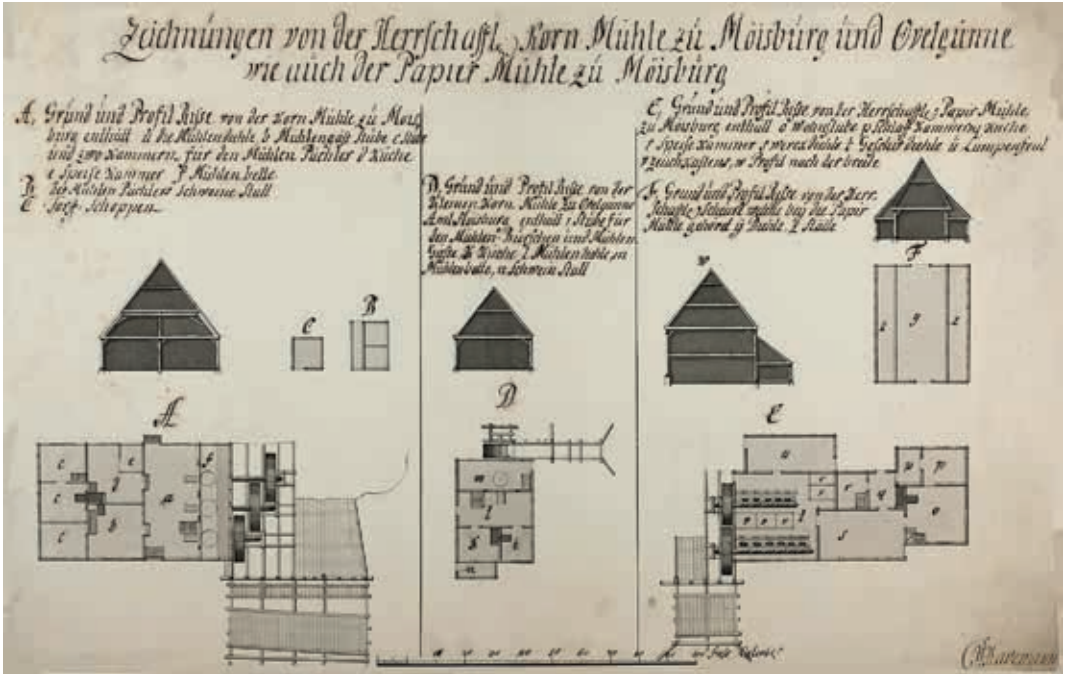 Zeichnungen von der Herrschaftl. Korn Mühle zu Möisburg und Ovelgünne
wie auch der Papier Mühle zu Möisburg
A, Grund und Profil Risse von der Korn Mühle zu Mois
burg enthält a die Mühlendehle b Mühlengäst Stube c Stube
und zwo Kammern, für den Mühlen Pächter d Küche
e Speise Kammer f Mühlen belle
B des Mühlen Pächters Schweine Stall
C Torf-Schoppen
D, Grund und Profil Risse von der
kleinen Korn Mühle zu Ovelgünne
Amt Moisburg, enthält i Stube für
den Mühlen Burschen und Mühlen
Gäste, k Küche l Mühlendehle, m
Mühlenbelle, n Schwein Stall
E, Grund und Profil Risse von der Herrschaftl. Papier Mühle
zu Moisburg enthält o Wohnstube p Schlaf Kammer q Küche
r Speise Kammer s dehle t Geschir dehle u Lumpen
v Zeuch Kastens, w Profil nach der breite
F, Grund und Profil Risse von der Herr
Schaftl. Scheure welche bey die Papier
Mühle gehöret y Diehle, z Stalle
F
w
C
B
z
y
z
A
D
E
c
e
f
d
a
c
b
c
m
l
k
i
n
u
p
p
r
r
r
q
t
o
v
v
v
s